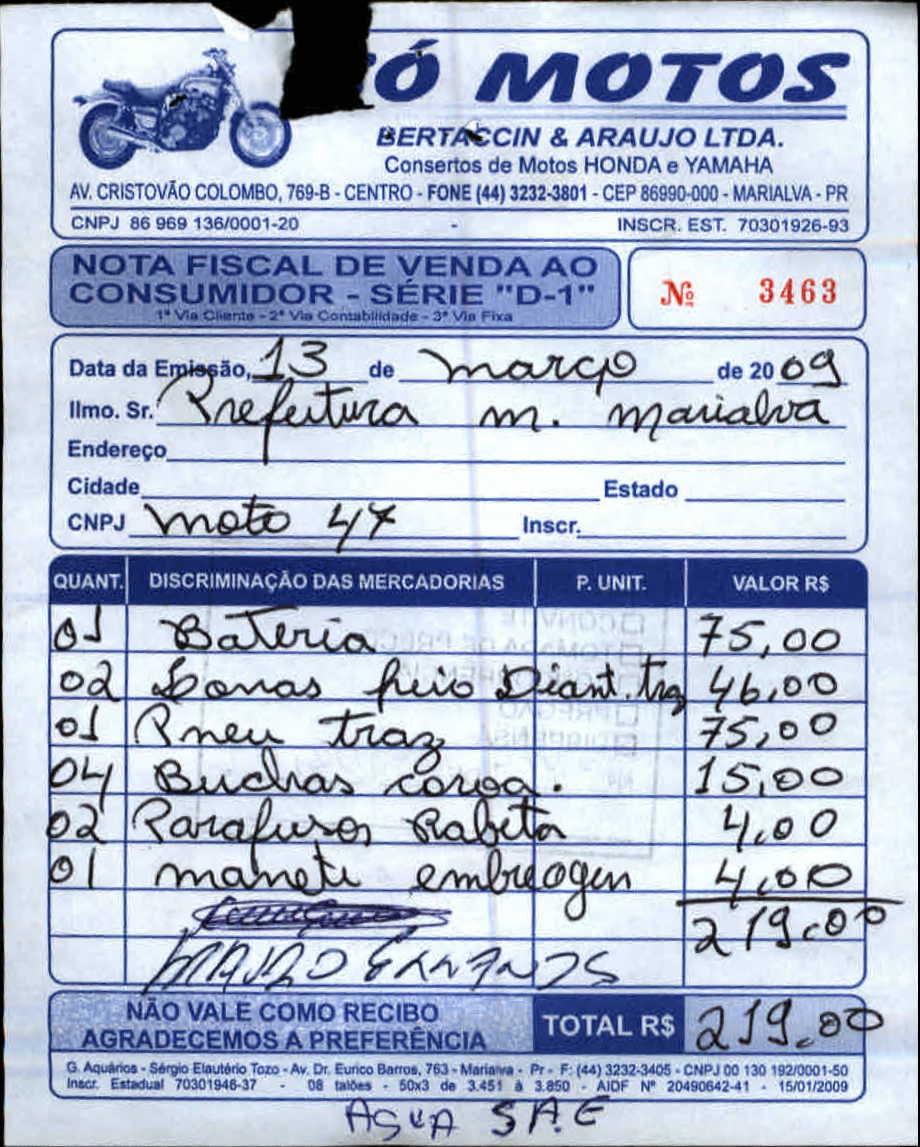 Ó MOTOS
BERTACCIN & ARAUJO LTDA.
Consertos de Motos HONDA e YAMAHA
AV. CRISTOVÃO COLOMBO, 769-B - CENTRO - FONE (44) 3232-3801 - CEP 86990-000 - MARIALVA - PR
CNPJ 86 969 136/0001-20 - INSCR. EST. 70301926-93
NOTA FISCAL DE VENDA AO
CONSUMIDOR - SÉRIE "D-1"
1ª Via Cliente - 2ª Via Contabilidade - 3ª Via Fixa
Nº 3463
Data da Emissão, 13 de março de 2009
Ilmo. Sr. Prefeitura m. marialva
Endereço
Cidade Estado
CNPJ moto 47 Inscr.
QUANT. DISCRIMINAÇÃO DAS MERCADORIAS P. UNIT. VALOR R$
01 Bateria 75,00
02 Lonas freio Diant. traz 46,00
01 Pneu traz 75,00
04 Buchas coroa. 15,00
02 Parafusos Rabeta 4,00
01 manete embreagen 4,00
219,00
NÃO VALE COMO RECIBO
AGRADECEMOS A PREFERÊNCIA
TOTAL R$ 219,00
G. Aquários - Sérgio Elautério Tozo - Av. Dr. Eurico Barros, 763 - Marialva - Pr - F: (44) 3232-3405 - CNPJ 00 130 192/0001-50
Inscr. Estadual 70301946-37 - 08 talões - 50x3 de 3.451 à 3.850 - AIDF Nº 20490642-41 - 15/01/2009
AGUA SAE